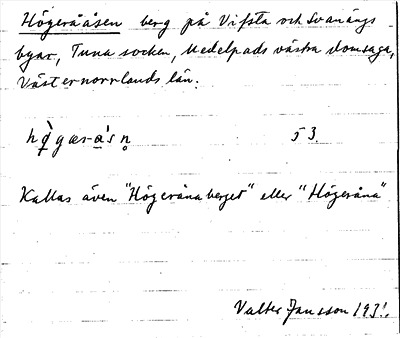 Högerååsen berg på Vifsta och Svanängs
byar, Tuna socken, Medelpads västra domsaga,
Västernorrlands län.
53.
Kallas även "Högeråna berget" eller "Högeråna"
Valter Jansson 1931.